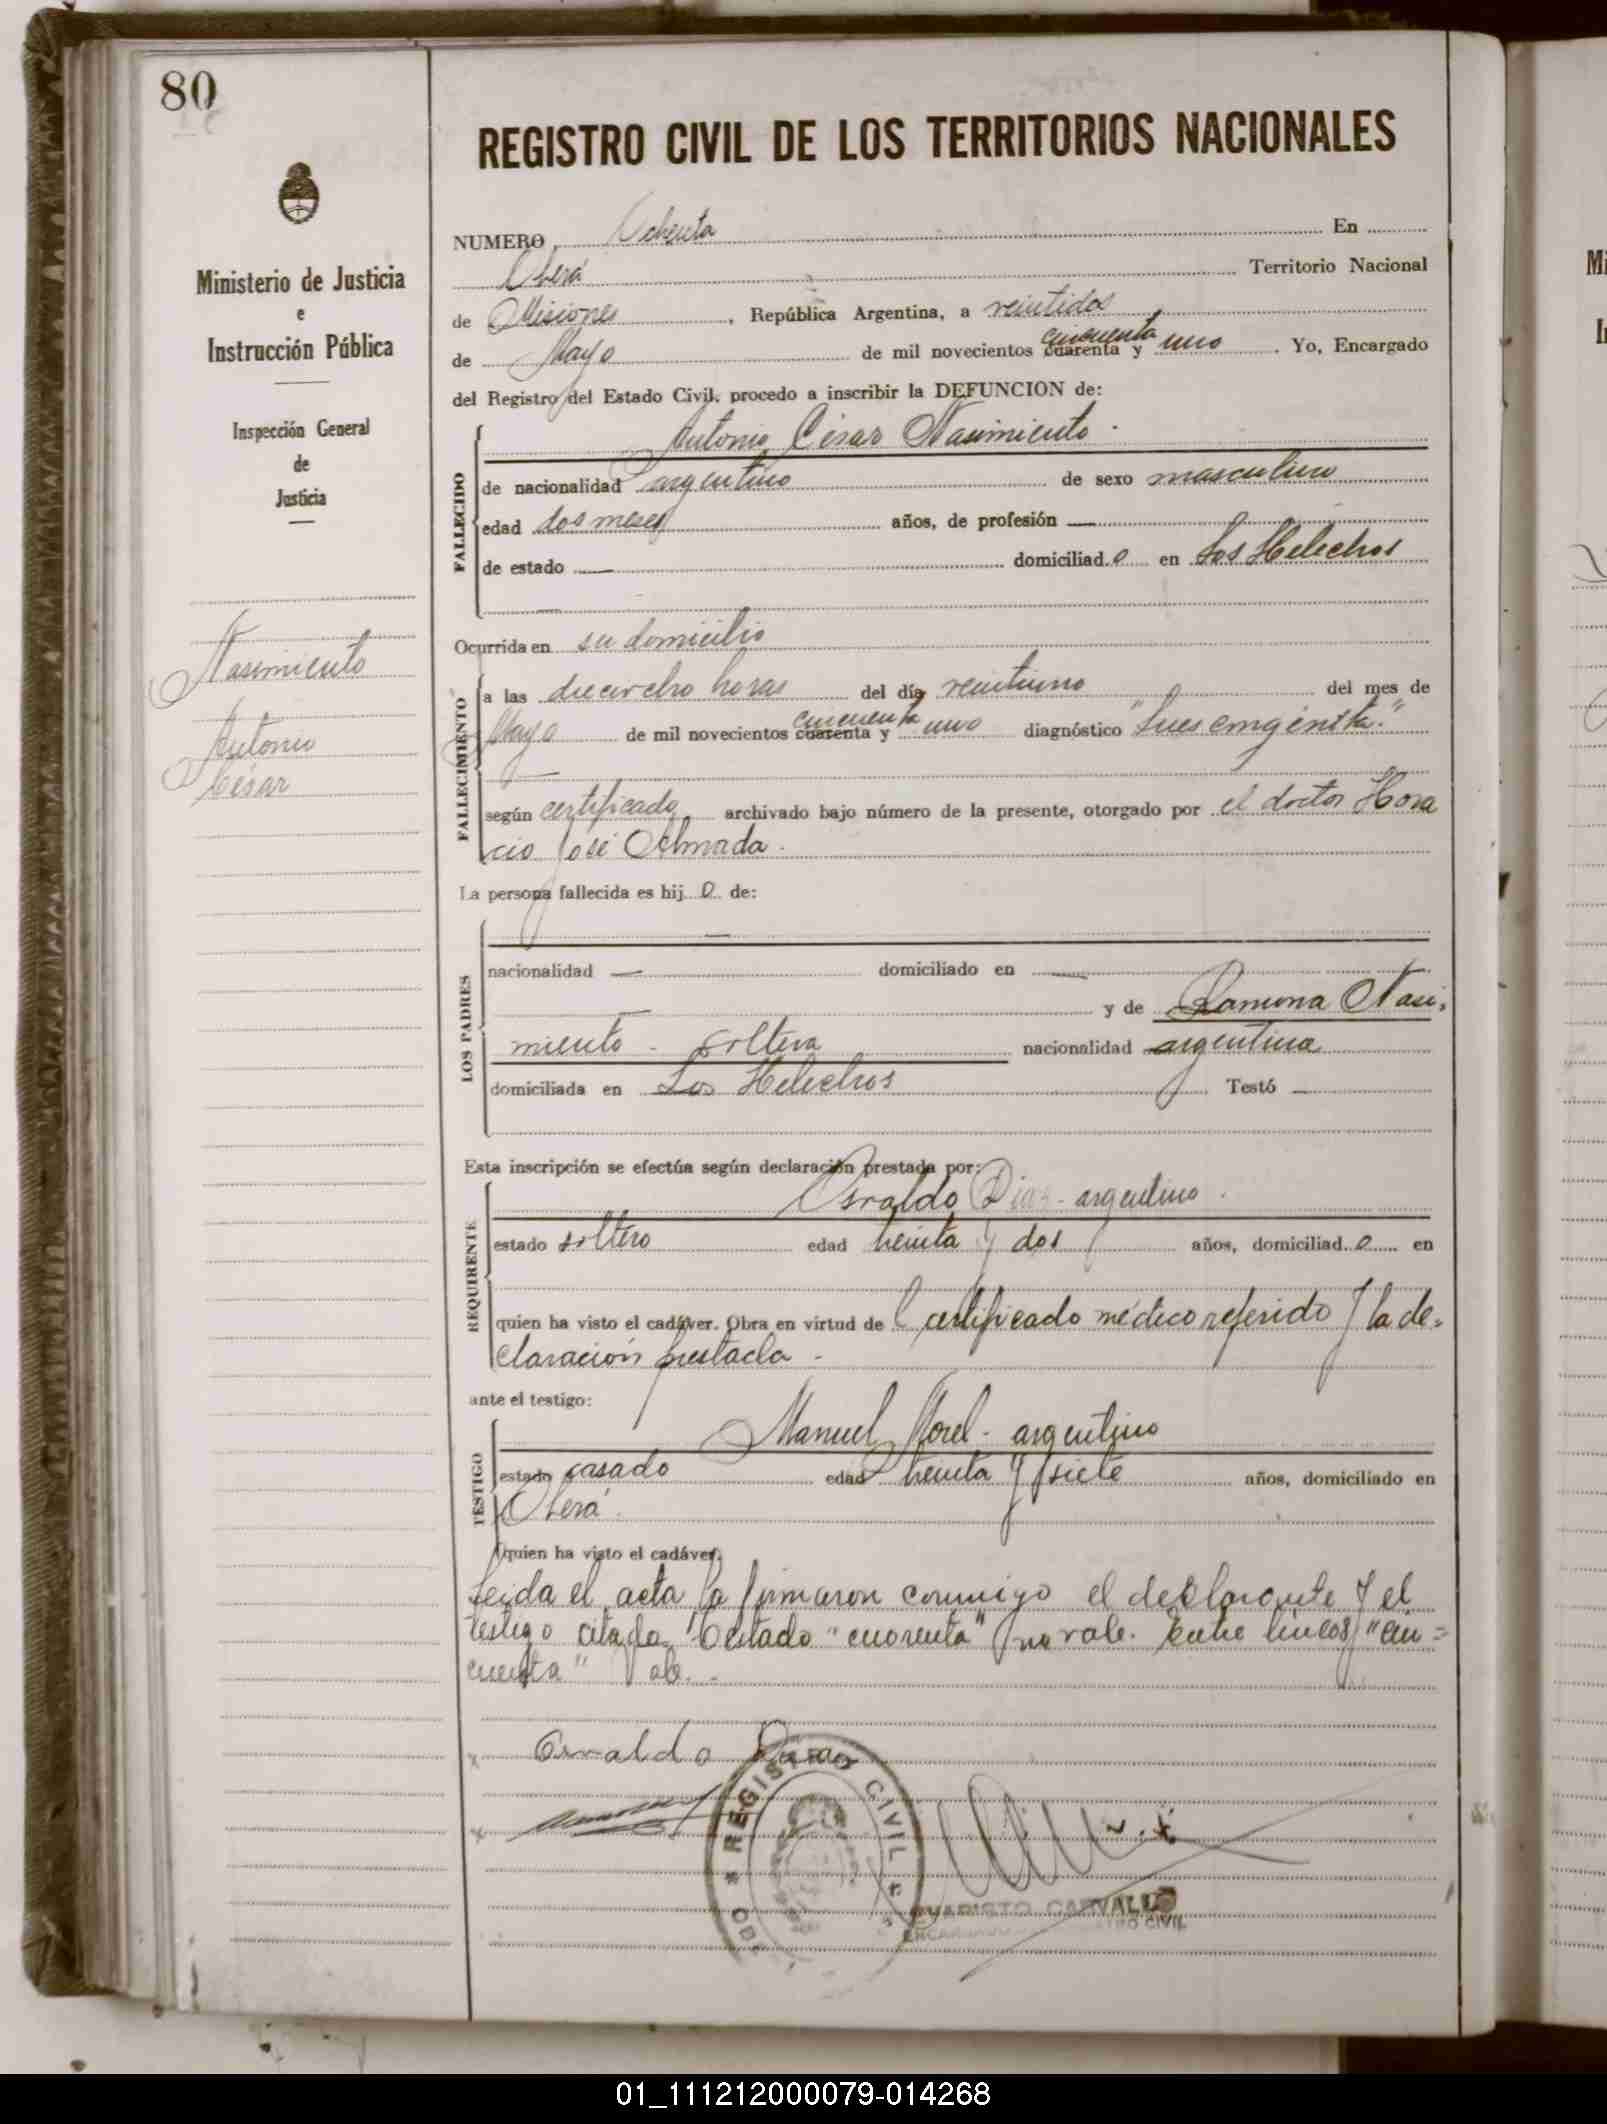 80
REGISTRO CIVIL DE LOS TERRITORIOS NACIONALES
Ministerio de Justicia
e
Instrucción Pública
Inspección General
de
Justicia
Nasimiento
Antonio
César
NUMERO Ochenta En
Oberá Territorio Nacional
de Misiones, República Argentina, a veintidos
cincuenta
de Mayo de mil novecientos cuarenta y uno. Yo, Encargado
del Registro del Estado Civil, procedo a inscribir la DEFUNCION de:
FALLECIDO
Antonio César Nasimiento.
de nacionalidad argentino de sexo masculino
edad dos meses años, de profesión —
de estado — domiciliad o en Los Helechos
—
Ocurrida en su domicilio
FALLECIMIENTO
a las dieciocho horas del día veintiuno del mes de
cincuenta
Mayo de mil novecientos cuarenta y uno diagnóstico "Lues congénita."
—
según certificado archivado bajo número de la presente, otorgado por el doctor Hora
cio José Almada.
La persona fallecida es hij o de:
LOS PADRES
—
nacionalidad — domiciliado en —
— y de Ramona Nasi-
miento - soltera nacionalidad argentina
domiciliada en Los Helechos Testó —
Esta inscripción se efectúa según declaración prestada por:
REQUIRENTE
Osvaldo - argentino.
estado soltero edad treinta y dos años, domiciliad o en
quien ha visto el cadáver. Obra en virtud del certificado médico referido y la de-
claración prestada -
ante el testigo:
TESTIGO
Manuel Morel - argentino
estado casado edad treinta y siete años, domiciliado en
Oberá.
quien ha visto el cadáver.
Leida el acta la firmaron conmigo el declarante y el
testigo citado. Testado "cuarenta" no vale. Entre lineas "cin=
cuenta" vale. -
x Osvaldo
x
REGISTRO CIVIL
EVARISTO CARVALLO
ENCARGADO REGISTRO CIVIL
01_111212000079-014268